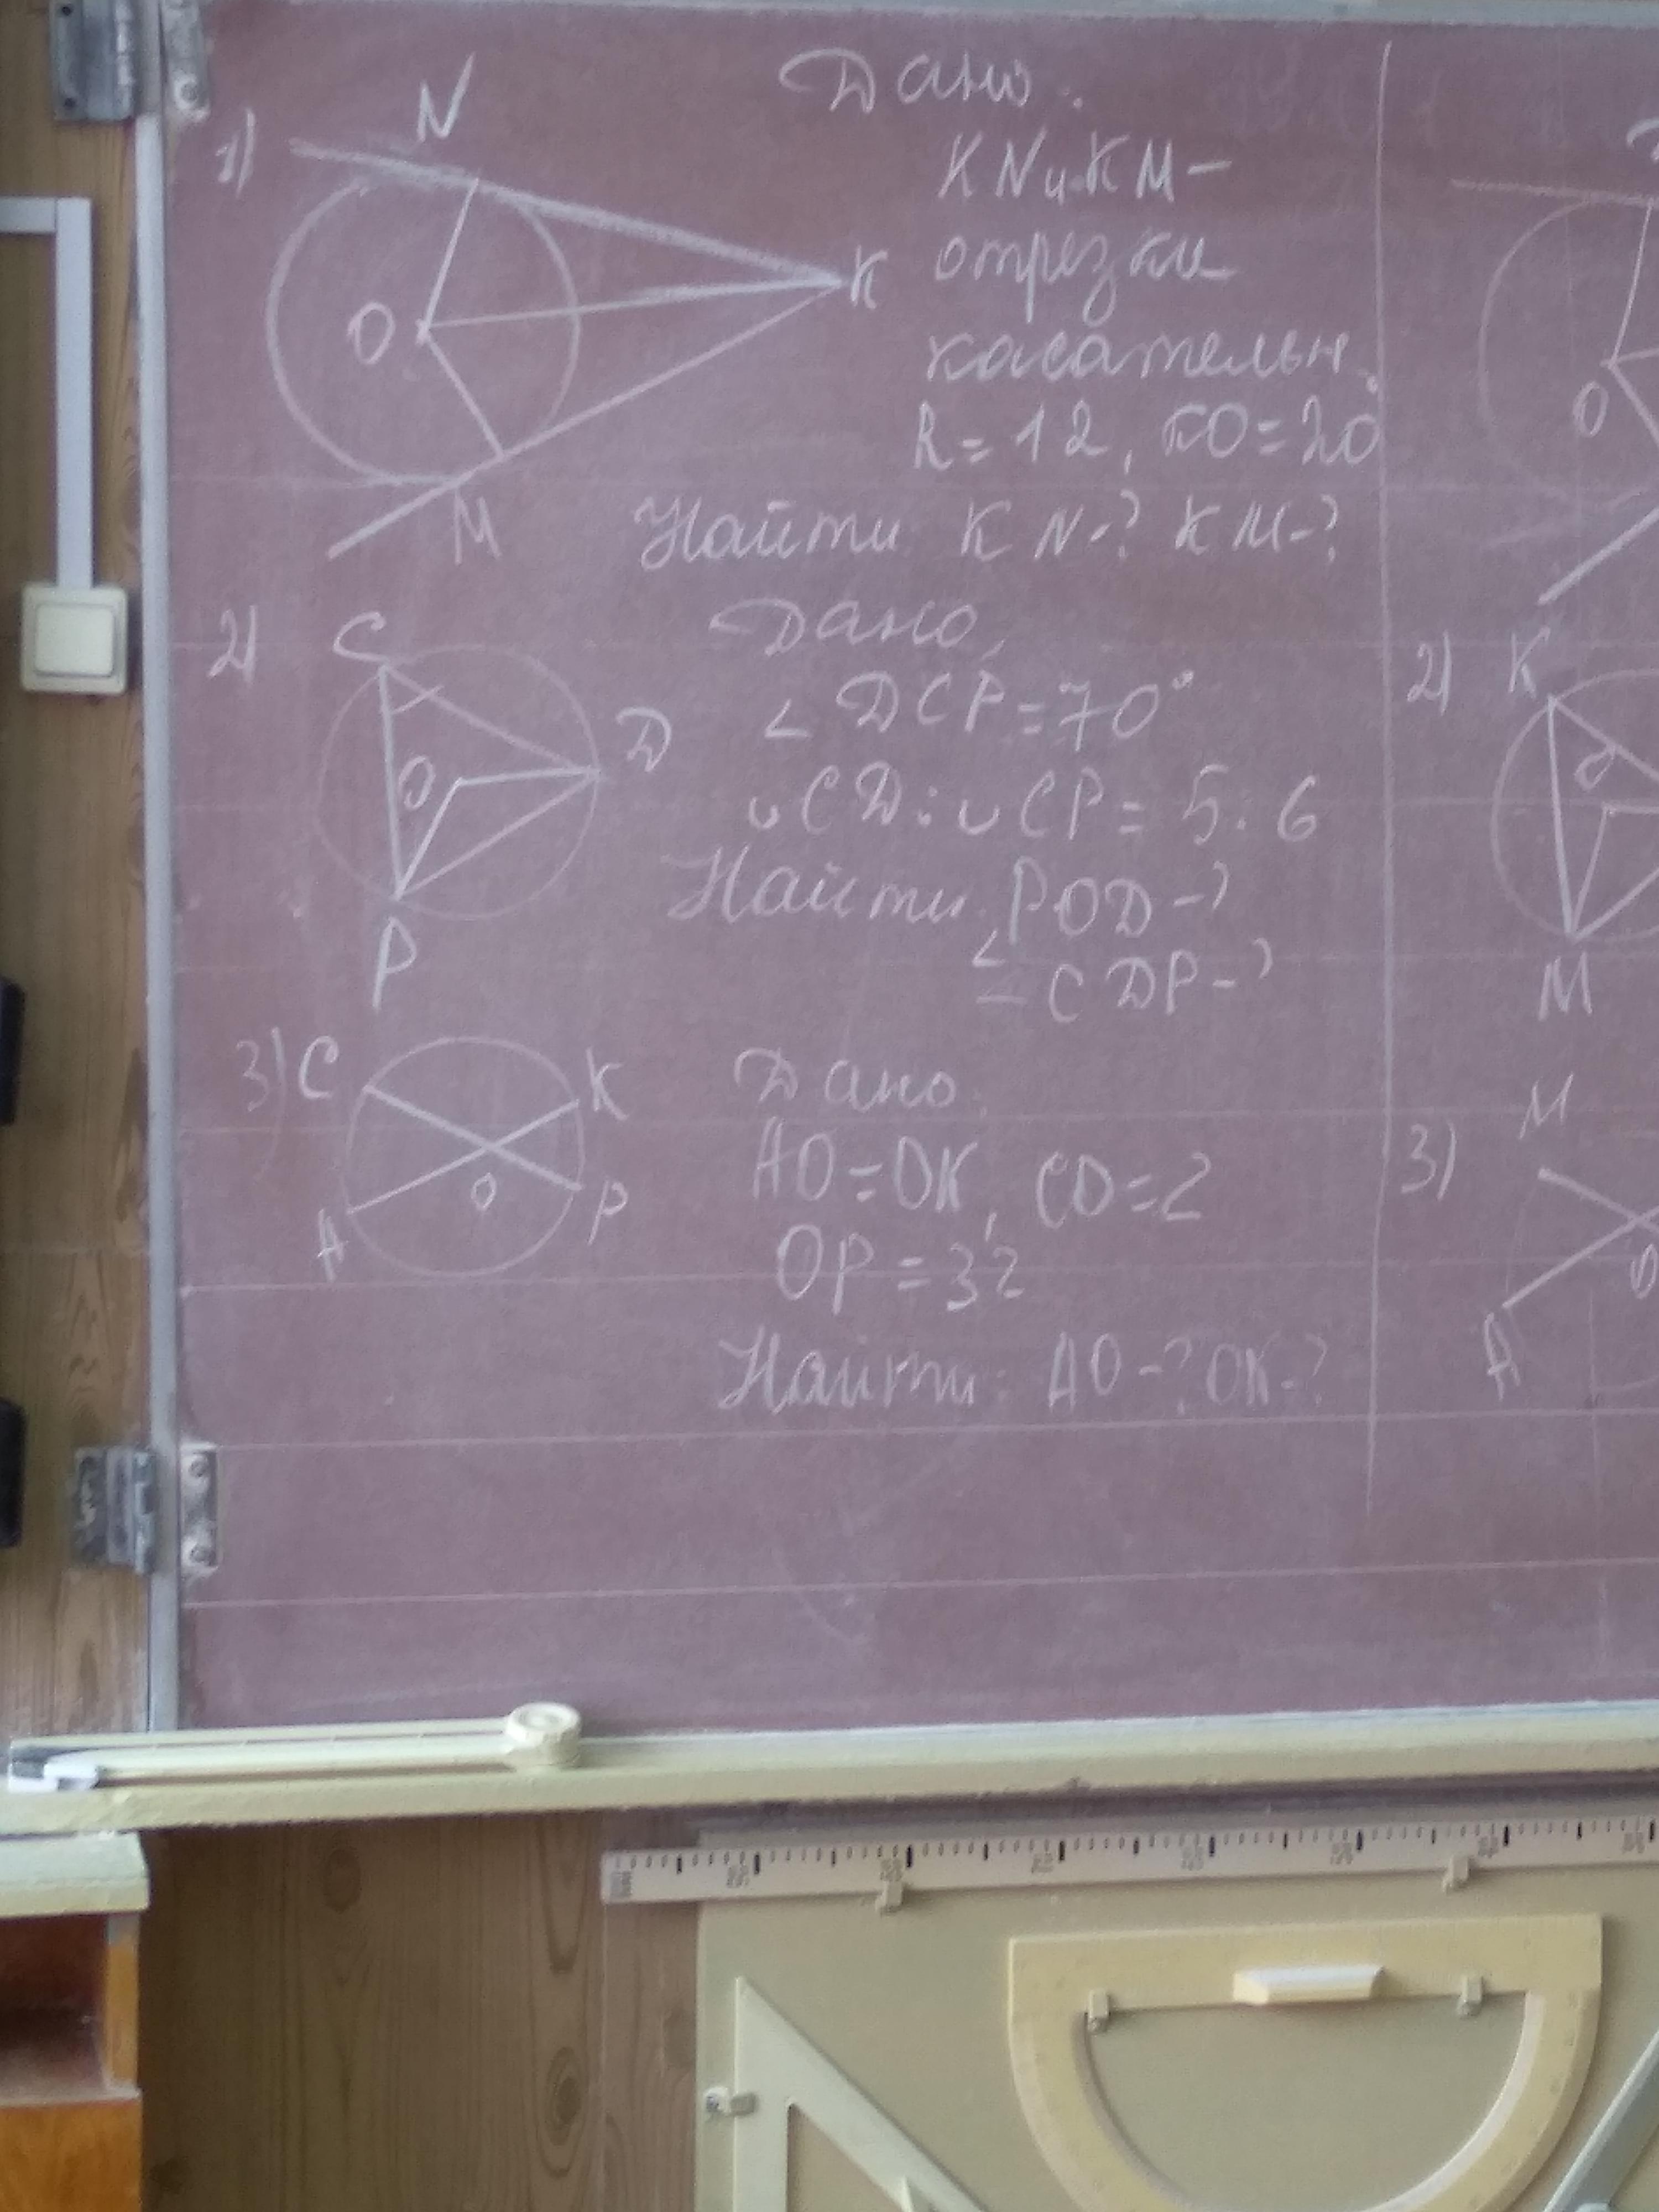 1)
N
O
K
M
Дано:
KN и KM -
отрезки
касательн.
R = 12, KO = 20
Найти KN-? KM-?
2)
C
D
O
P
Дано:
∠ DCP = 70°
∪ CD : ∪ CP = 5 : 6
Найти: POD -?
∠ CDP -?
3)
C
K
O
A
P
Дано:
AO = OK, CO = 2
OP = 32
Найти: AO -? OK -?
O
2)
K
O
M
3)
M
O
A